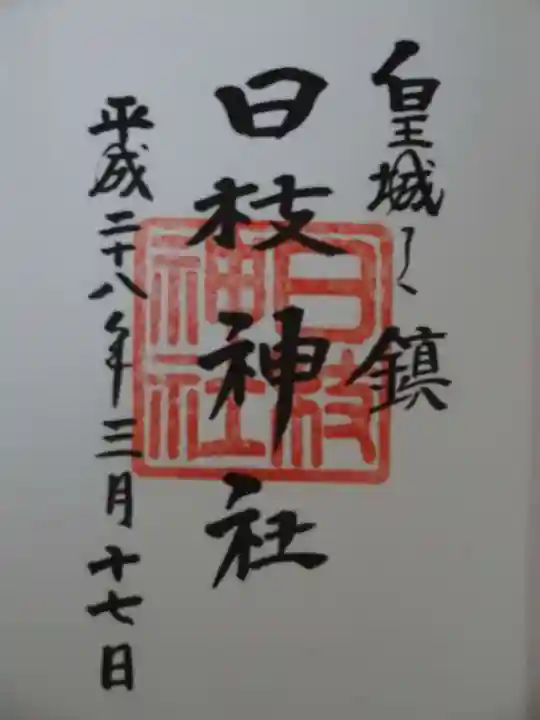 皇城之鎮
日枝神社
日枝神社
平成二十八年三月十七日